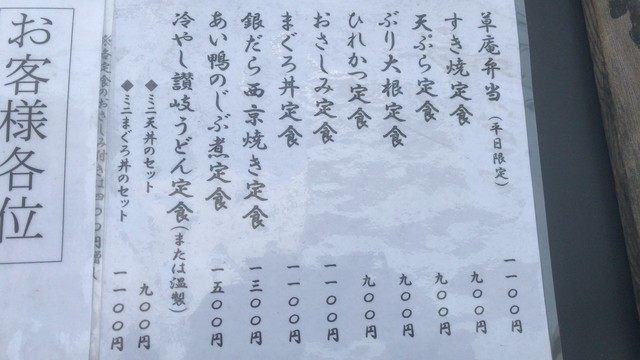 草庵弁当（平日限定） 一一〇〇円
すき焼定食 九〇〇円
天ぷら定食 九〇〇円
ぶり大根定食 九〇〇円
ひれかつ定食 九〇〇円
おさしみ定食 一一〇〇円
まぐろ丼定食 一一〇〇円
銀だら西京焼き定食 一三〇〇円
あい鴨のじぶ煮定食 一五〇〇円
冷やし讃岐うどん定食（または温製）
◆ミニ天丼のセット 九〇〇円
◆ミニまぐろ丼のセット 一一〇〇円
定食のおさしみ付きは
お客様各位